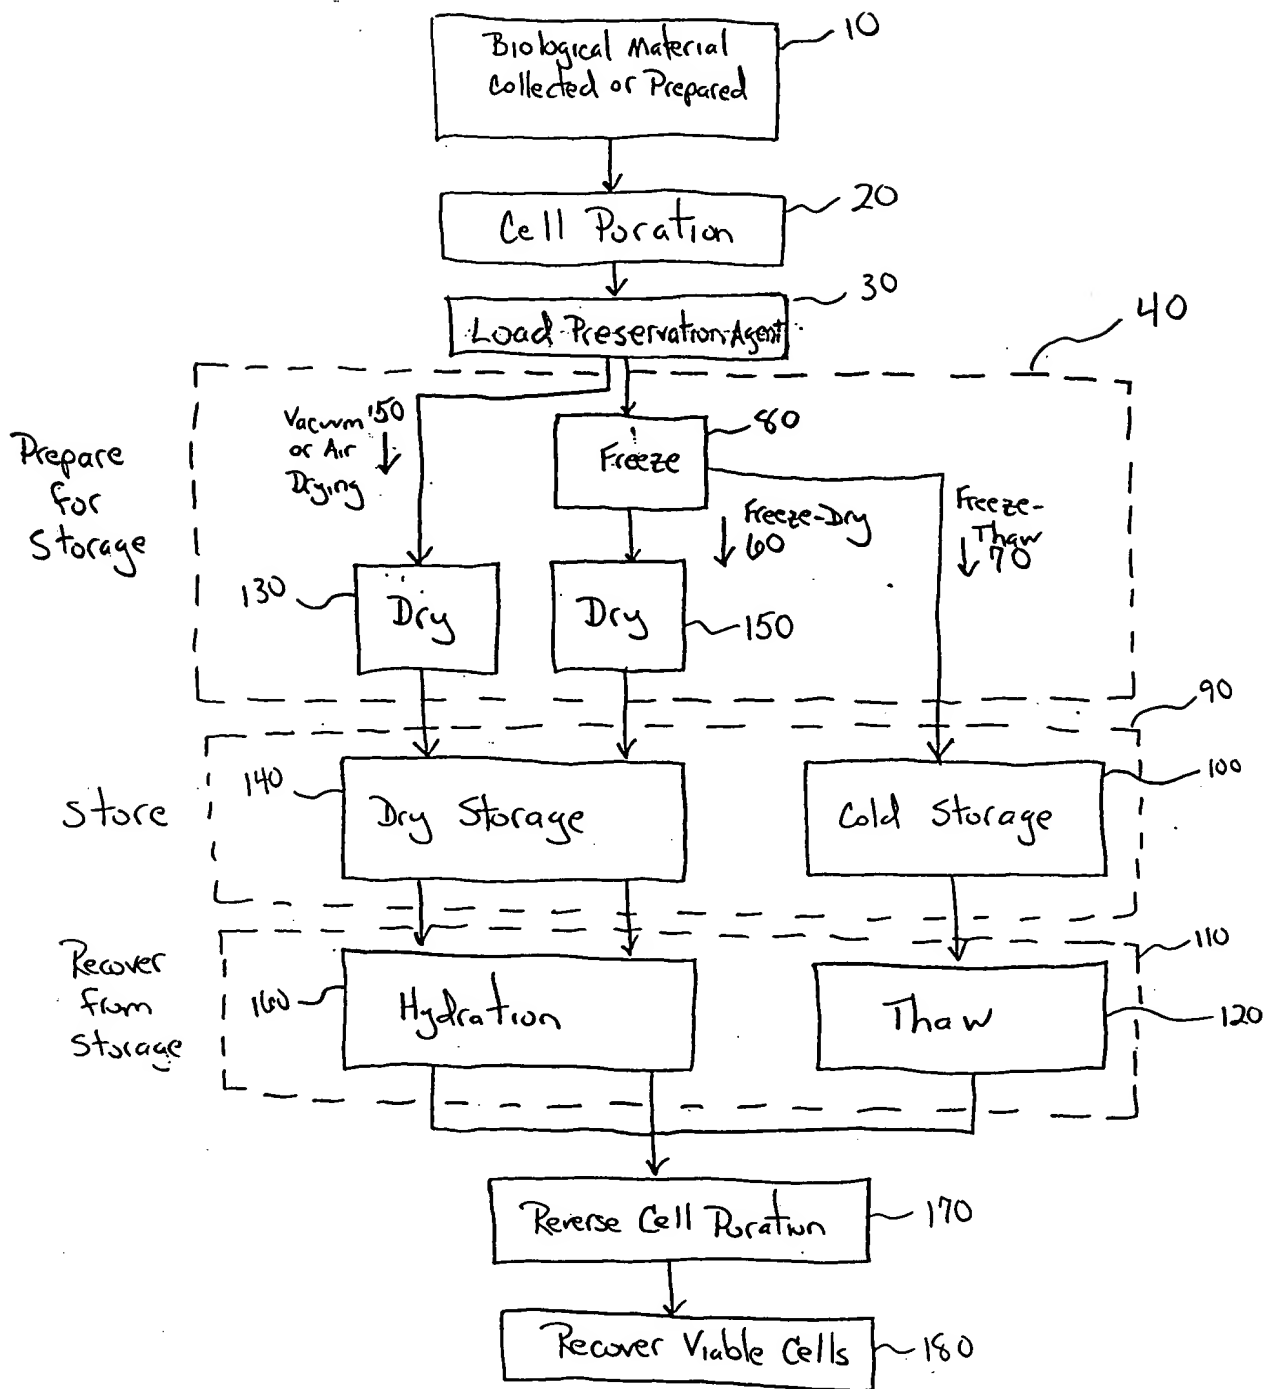 Biological Material
Collected or Prepared
10
Cell Poration
20
30
Load Preservation Agent
40
Prepare
for
Storage
Vacuum
or Air
Drying
150
Freeze
80
Freeze-Dry
60
Freeze-
Thaw
70
130
Dry
Dry
150
90
Store
140
Dry Storage
Cold Storage
100
Recover
from
Storage
110
160
Hydration
Thaw
120
Reverse Cell Poration
170
Recover Viable Cells
180